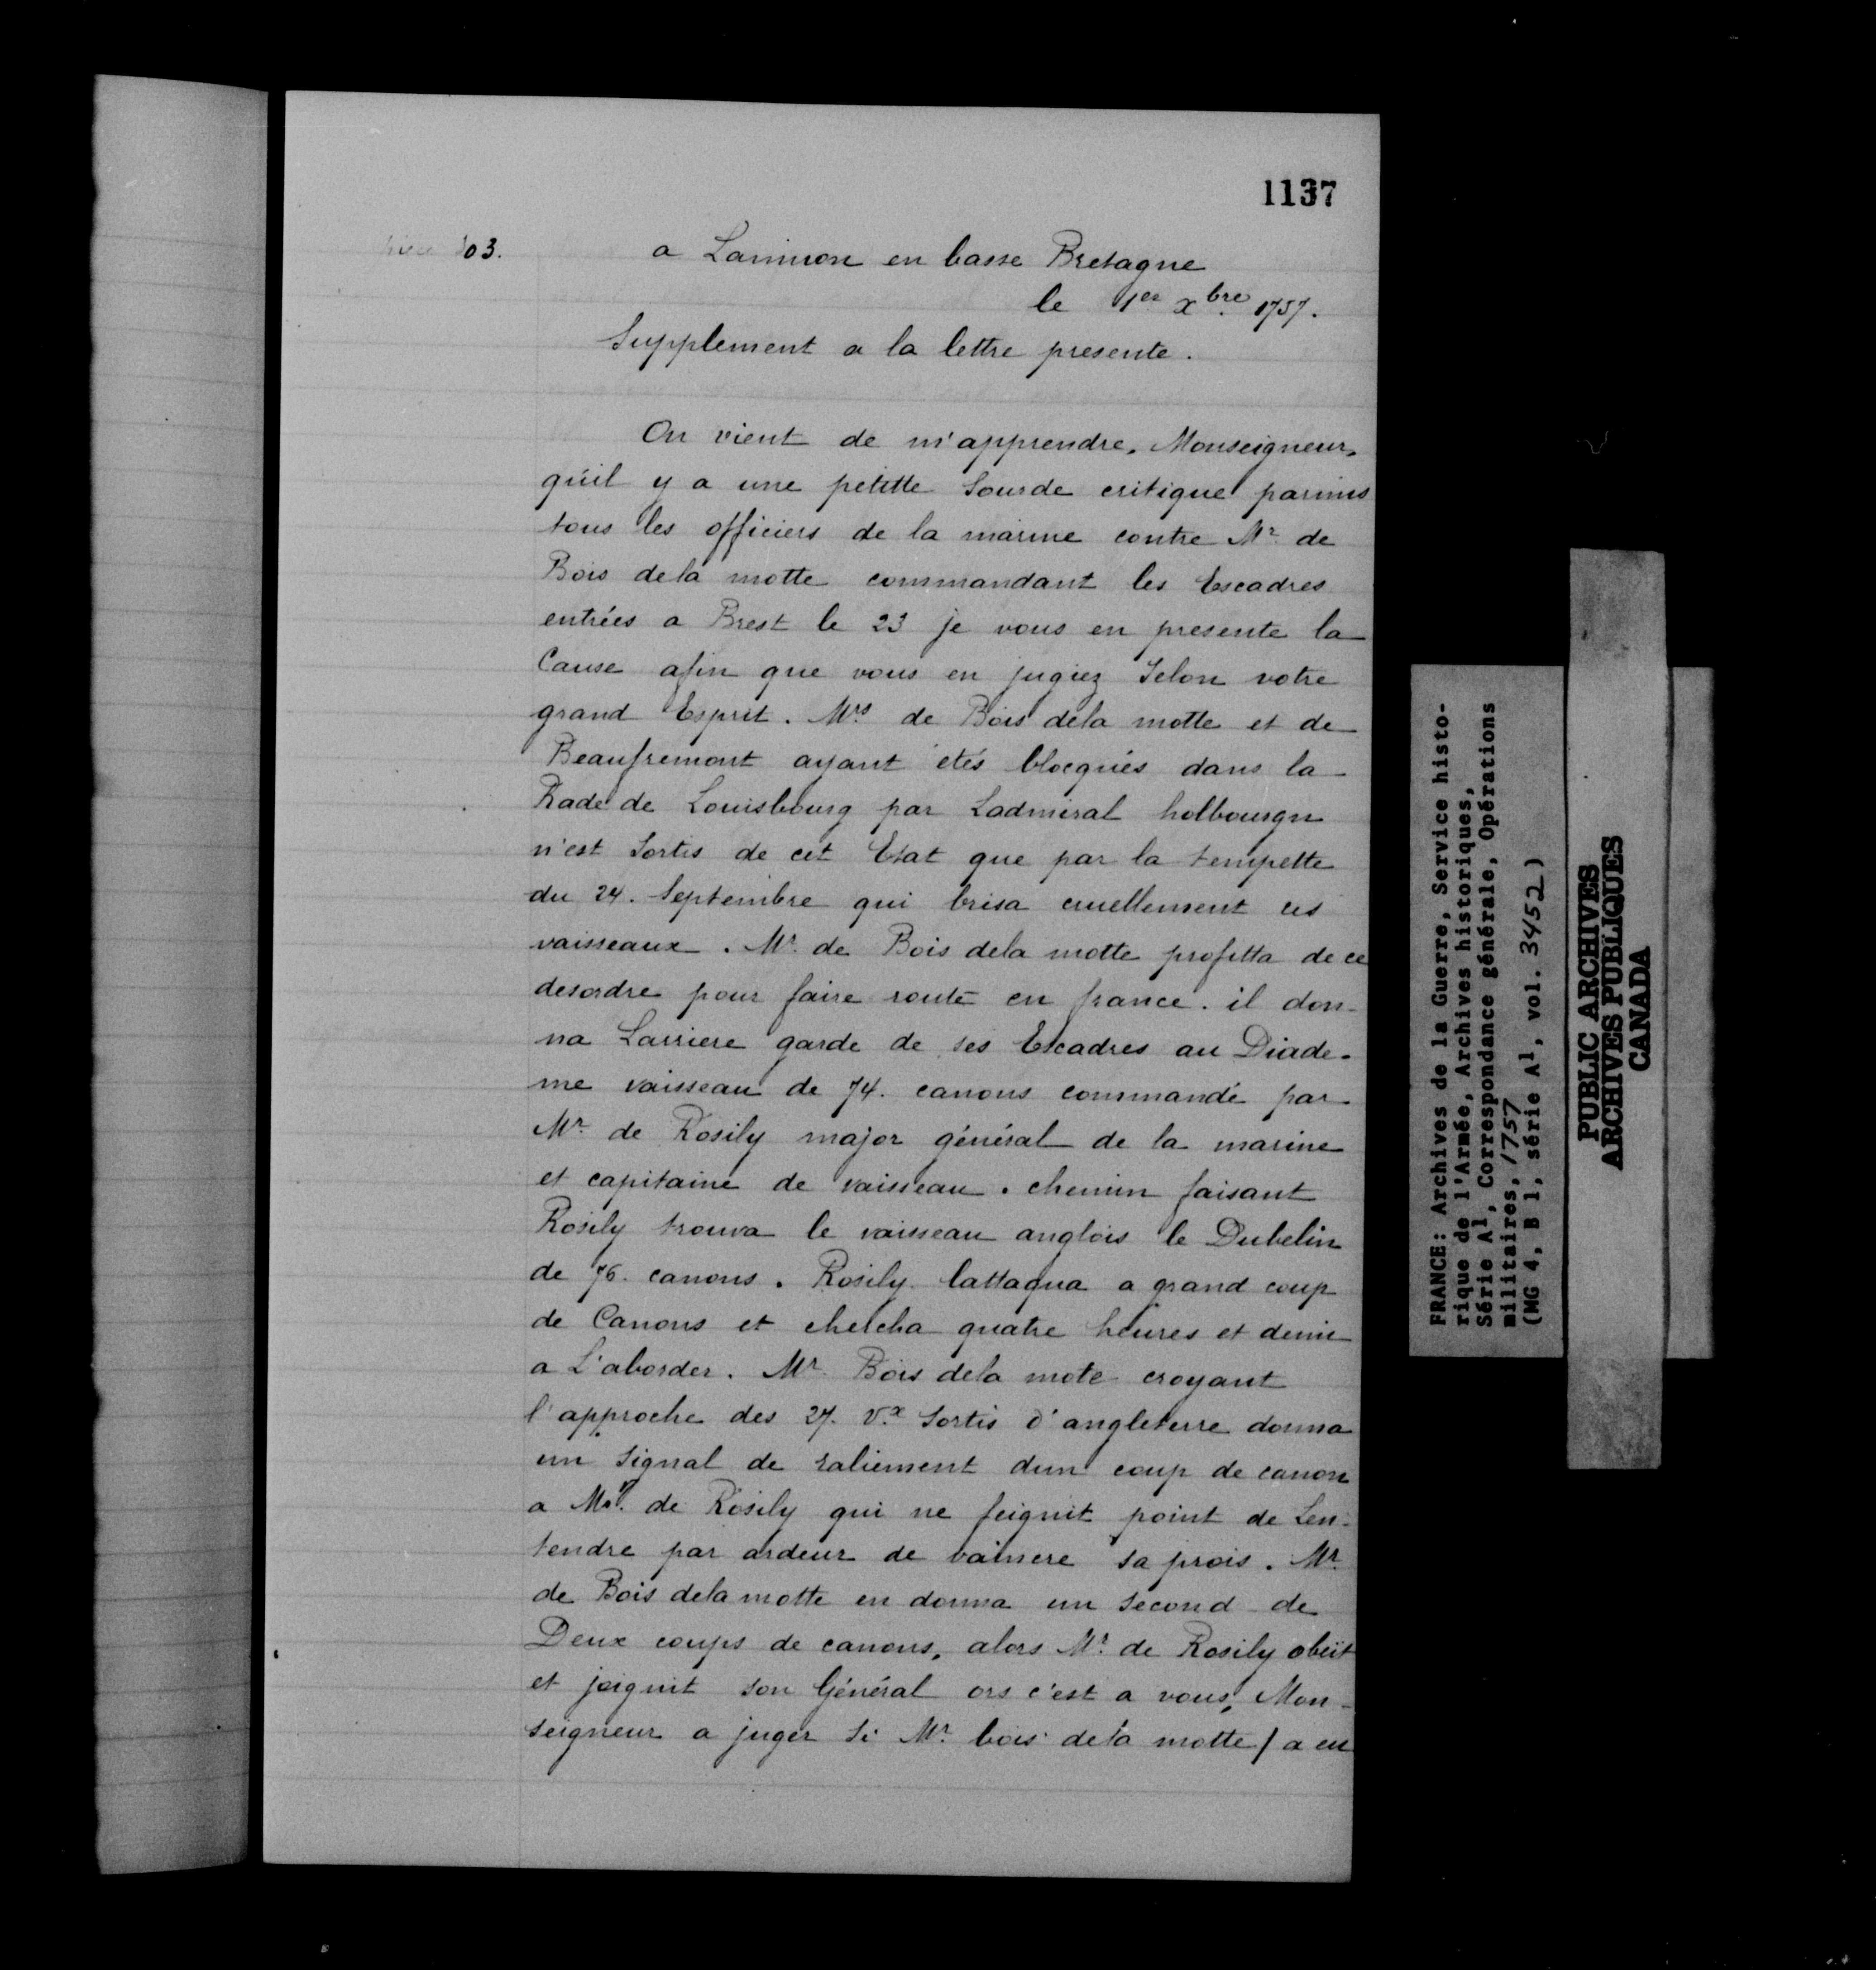 1137
pièce 303.
a Lannion en basse Bretagne
le 1er xbre 1757.
Supplement a la lettre presente.
On vient de m'apprendre, Monseigneur,
qu'il y a une petitte Sourde critique parmis
tous les officiers de la marine contre Mr de
Bois dela motte commandant les Escadres
entrées a Brest le 23 je vous en presente la
Cause afin que vous en jugiez Selon votre
grand Esprit. Mrs de Bois dela motte et de
Beaufremont ayant étés blocqués dans la
Rade de Louisbourg par Ladmiral holbourgn
n'est Sortis de cet Etat que par la tempette
du 24. Septembre qui brisa cruellement ces
vaisseaux. Mr de Bois dela motte profitta de ce
desordre pour faire route en france. il don-
na Larriere garde de ses Escadres au Diade-
me vaisseau de 74. canons commandé par
Mr de Rosily major général de la marine
et capitaine de vaisseau. chemin faisant
Rosily trouva le vaisseau anglois le Dubelin
de 76. canons. Rosily lattaqua a grand coup
de Canons et chercha quatre heures et demie
a L'aborder. Mr Bois dela mote croyant
l'approche des 27. Vx Sortis d'angleterre donna
un Signal de raliement dun coup de canon
a Mr. de Rosily qui ne feignit point de Len-
tendre par ardeur de vaincre sa prois. Mr
de Bois dela motte en donna un second de
Deux coups de canons, alors Mr de Rosily obeït
et joignit son Général ors c'est a vous, Mon-
seigneur a juger Si Mr bois dela motte / a eu
FRANCE: Archives de la Guerre, Service histo-
rique de l'Armée, Archives historiques,
Série A1, Correspondance générale, Opérations
militaires, 1757
(MG 4, B 1, série A1, vol. 3452)
PUBLIC ARCHIVES
ARCHIVES PUBLIQUES
CANADA